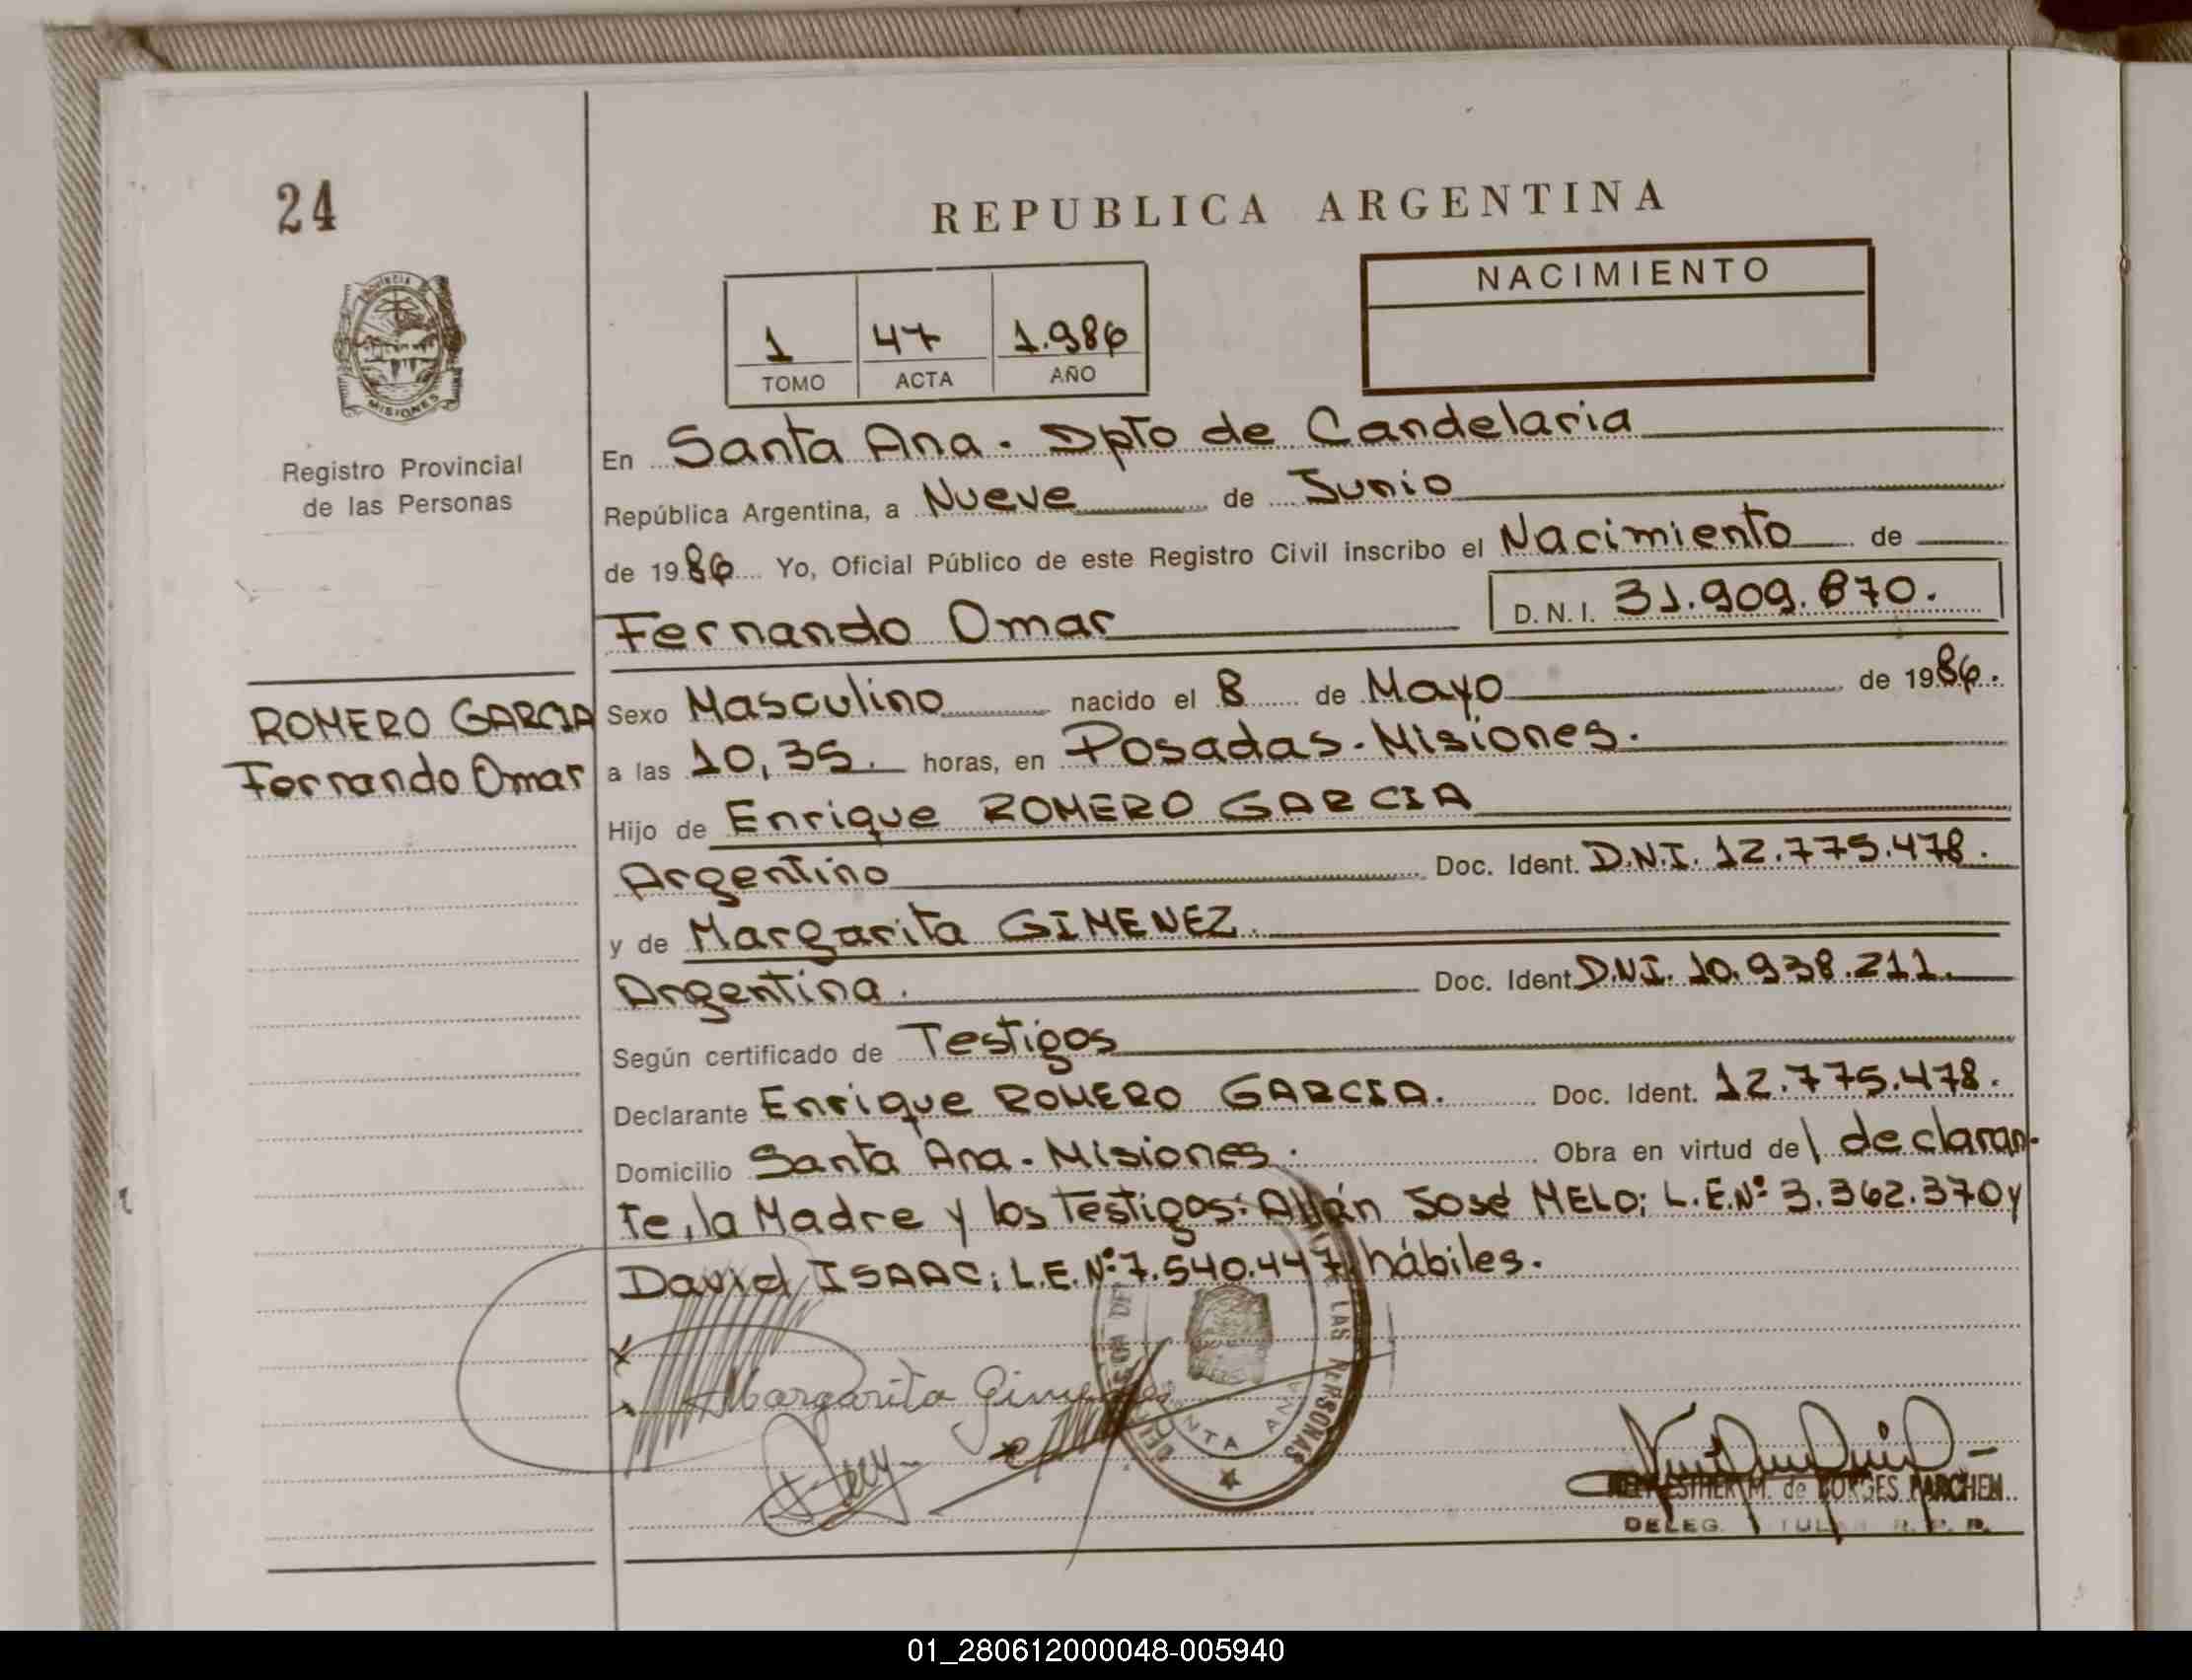 24
REPUBLICA ARGENTINA
NACIMIENTO
1 47 1.986
TOMO ACTA AÑO
PROVINCIA DE MISIONES
Registro Provincial
de las Personas
En Santa Ana. Dpto de Candelaria
República Argentina, a Nueve de Junio
de 1986 Yo, Oficial Público de este Registro Civil inscribo el Nacimiento de
Fernando Omar D.N.I. 31.909.870.
ROMERO GARCIA
Fernando Omar
Sexo Masculino nacido el 8 de Mayo de 1986.
a las 10,35. horas, en Posadas. Misiones.
Hijo de Enrique ROMERO GARCIA
Argentino Doc. Ident. D.N.I. 12.775.478.
y de Margarita GIMENEZ
Argentina. Doc. Ident. D.N.I. 10.938.211.
Según certificado de Testigos
Declarante Enrique ROMERO GARCIA. Doc. Ident. 12.775.478.
Domicilio Santa Ana. Misiones. Obra en virtud del declaran-
te, la Madre y los testigos: Allán José MELO; L.E.Nº 3.362.370 y
David ISAAC; L.E.Nº 7.540.447 hábiles.
Margarita Gimenez
LAS PERSONAS
SANTA ANA
ESTHER M. de BORGES PARCHEM
DELEG. R. P. P.
01_280612000048-005940